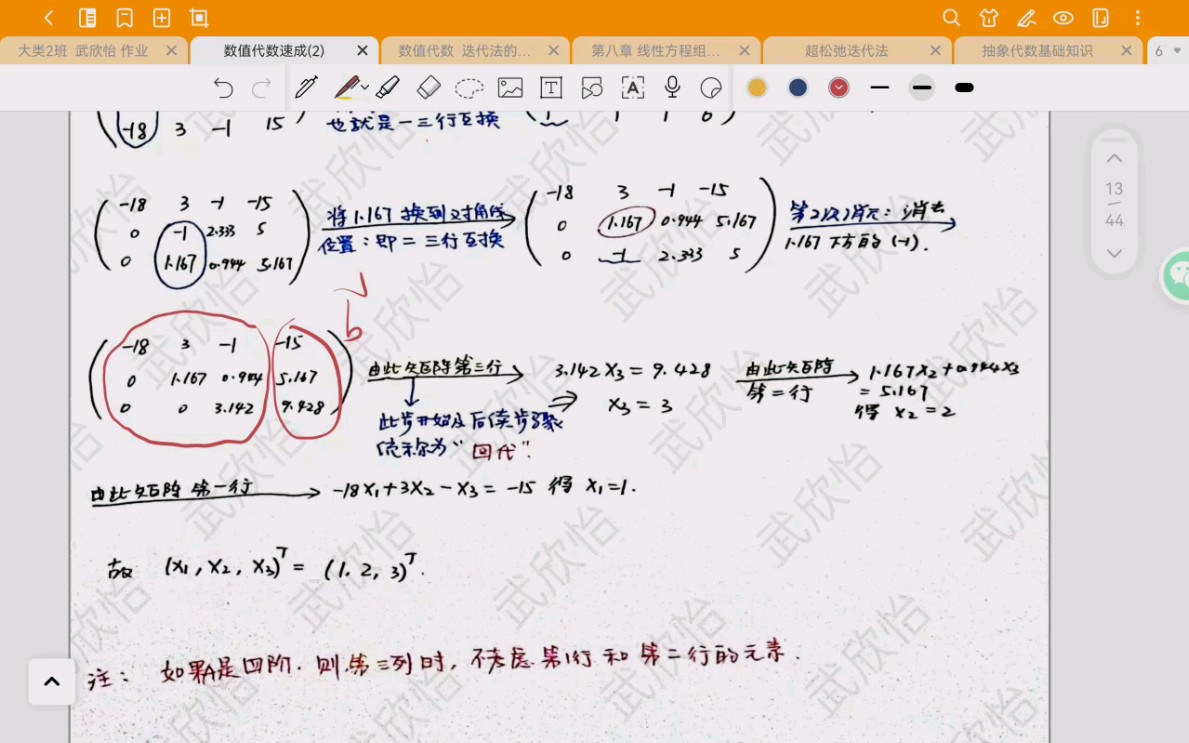 大类2班 武欣怡 作业
数值代数速成(2)
数值代数 迭代法的...
第八章 线性方程组...
超松弛迭代法
抽象代数基础知识
6
13
44
-18 3 -1 15
也就是一三行互换
1 1 1 6
-18 3 -1 -15
0 -1 2.333 5
0 1.167 0.944 5.167
将1.167换到对角线
位置:即二三行互换
-18 3 -1 -15
0 1.167 0.944 5.167
0 -1 2.333 5
第2次消元:消去
1.167下方的(-1).
b
-18 3 -1 -15
0 1.167 0.944 5.167
0 0 3.142 9.428
由此矩阵第三行
此步开始及后续步骤
统称为“回代”.
3.142X3=9.428
⇒ X3=3
由此矩阵
第二行
1.167X2+0.944X3
=5.167
得 X2=2
由此矩阵 第一行
-18X1+3X2-X3=-15 得 X1=1.
故 (X1,X2,X3)T=(1,2,3)T.
注: 如果A是四阶.则第三列时,不考虑第1行和第二行的元素.
武欣怡